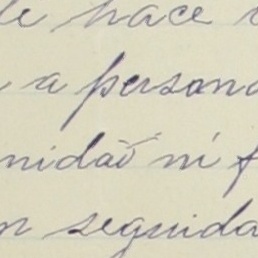 le hace
a persona
nidad ni f
n seguida